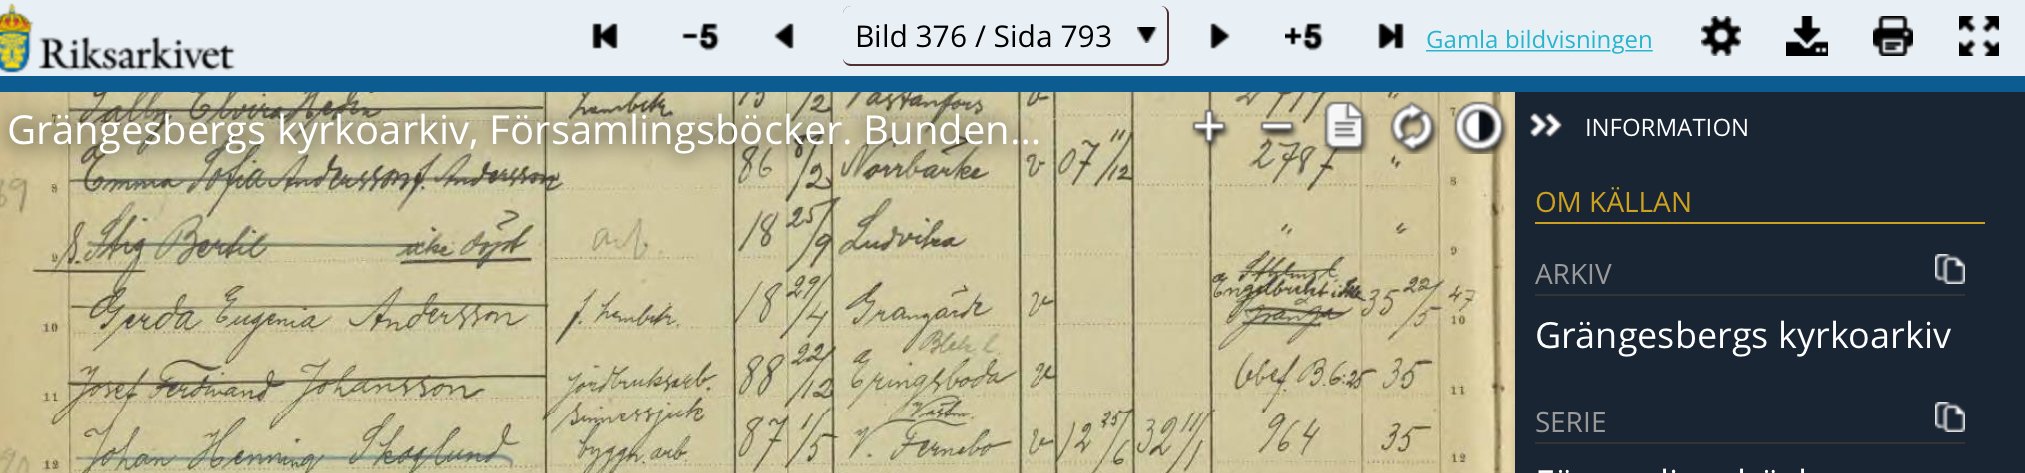 Riksarkivet
−5
Bild 376 / Sida 793
+5
Gamla bildvisningen
Grängesbergs kyrkoarkiv, Församlingsböcker. Bunden...
INFORMATION
OM KÄLLAN
ARKIV
Grängesbergs kyrkoarkiv
SERIE
Elvira hembitr. 12 Västanfors
8 Emma Sofia Andersson f. Andersson 86 /2 Norrbärke v 07 11/12 2787 " 8
9 S. Stig Bertil icke döpt arb. 18 25/9 Ludvika " " 9
10 Gerda Eugenia Andersson f. hembitr. 18 29/4 Grangärde v 35 22/5 47 10
11 Josef Ferdinand Johansson jordbruksarb. 88 22/12 Eringsboda v Obef. B.6:25 35 11
sinnessjuk
12 Johan Henning Skoglund byggn.arb. 87 1/5 V. Fernebo v 12 25/6 32 11/1 964 35 12